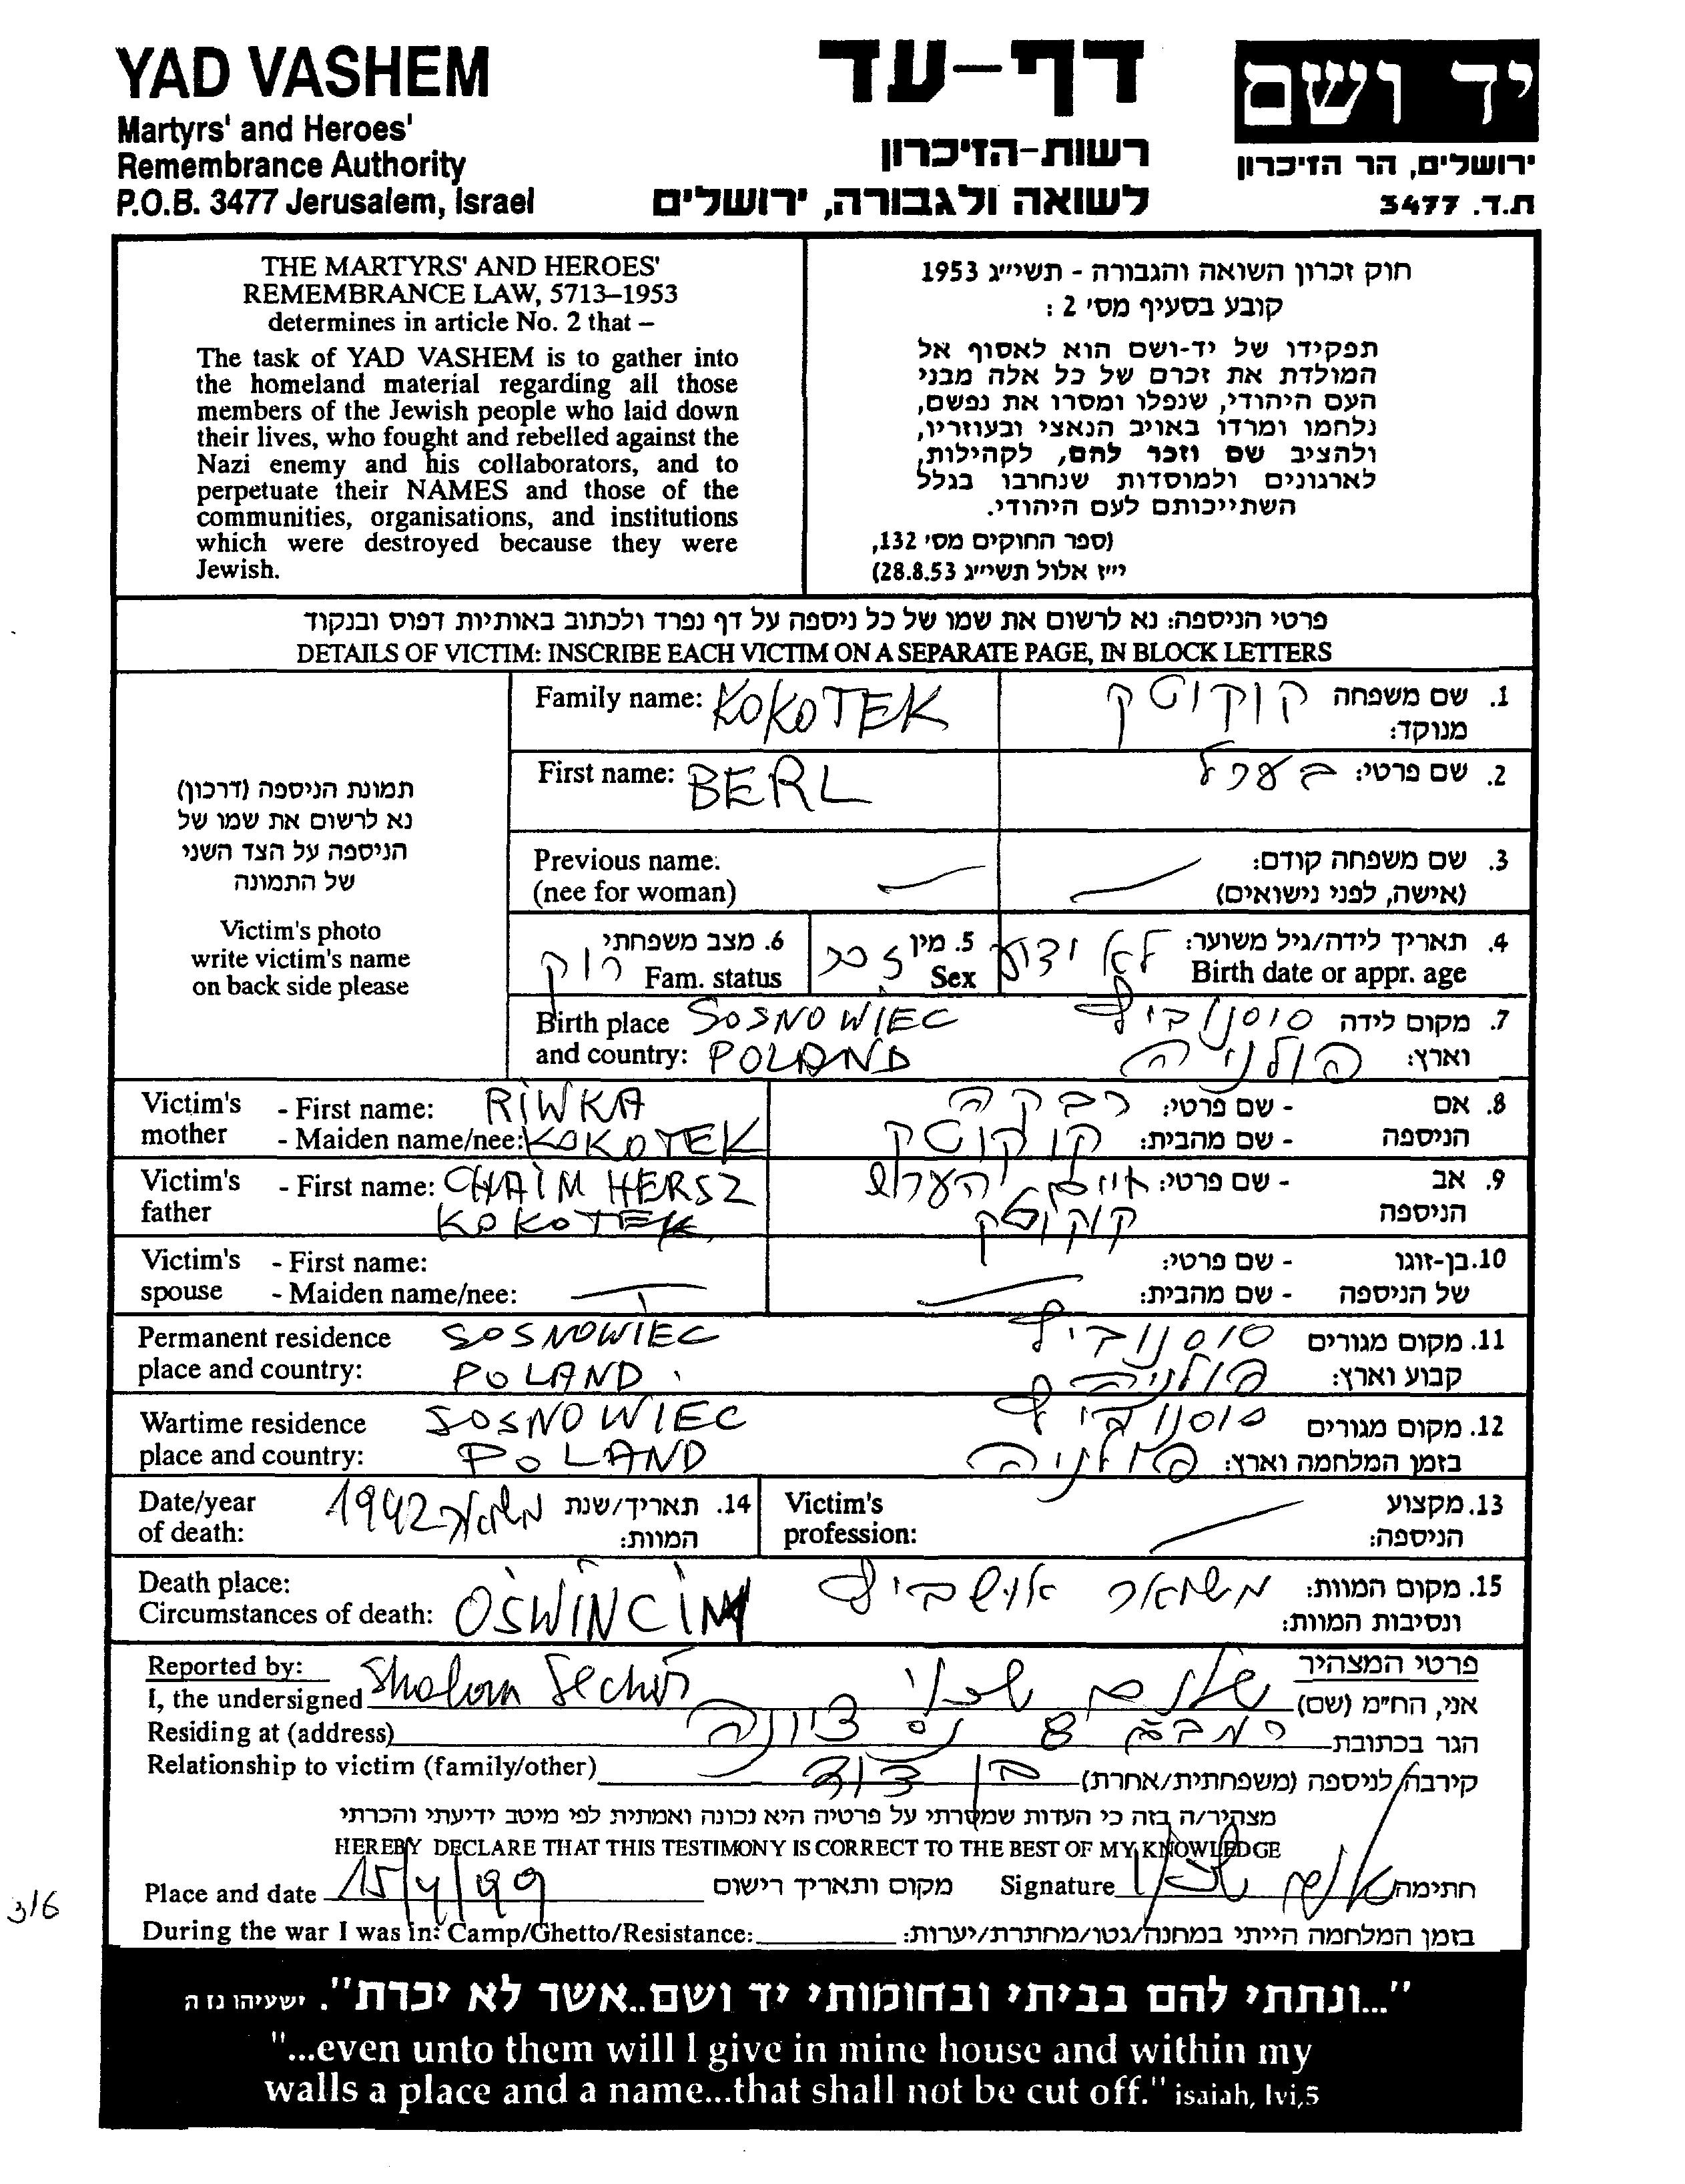 YAD VASHEM
Martyrs' and Heroes'
Remembrance Authority
P.O.B. 3477 Jerusalem, Israel
דף-עד
רשות-הזיכרון
לשואה ולגבורה, ירושלים
יד ושם
ירושלים, הר הזיכרון
ת.ד. 3477
THE MARTYRS' AND HEROES'
REMEMBRANCE LAW, 5713–1953
determines in article No. 2 that –
The task of YAD VASHEM is to gather into
the homeland material regarding all those
members of the Jewish people who laid down
their lives, who fought and rebelled against the
Nazi enemy and his collaborators, and to
perpetuate their NAMES and those of the
communities, organisations, and institutions
which were destroyed because they were
Jewish.
חוק זכרון השואה והגבורה - תשי״ג 1953
קובע בסעיף מס' 2 :
תפקידו של יד-ושם הוא לאסוף אל
המולדת את זכרם של כל אלה מבני
העם היהודי, שנפלו ומסרו את נפשם,
נלחמו ומרדו באויב הנאצי ובעוזריו,
ולהציב שם וזכר להם, לקהילות,
לארגונים ולמוסדות שנחרבו בגלל
השתייכותם לעם היהודי.
(ספר החוקים מס' 132,
י״ז אלול תשי״ג 28.8.53)
פרטי הניספה: נא לרשום את שמו של כל ניספה על דף נפרד ולכתוב באותיות דפוס ובנקוד
DETAILS OF VICTIM: INSCRIBE EACH VICTIM ON A SEPARATE PAGE, IN BLOCK LETTERS
תמונת הניספה (דרכון)
נא לרשום את שמו של
הניספה על הצד השני
של התמונה
Victim's photo
write victim's name
on back side please
Family name: KOKOTEK
1. שם משפחה מנוקד: קוקוטק
First name: BERL
2. שם פרטי: בערל
Previous name:
(nee for woman)
3. שם משפחה קודם:
(אישה, לפני נישואים)
4. תאריך לידה/גיל משוער: לא ידוע
Birth date or appr. age
5. מין זכר
Sex
6. מצב משפחתי רוק
Fam. status
Birth place SOSNOWIEC
and country: POLAND
7. מקום לידה סוסנוביץ
וארץ: פולניה
Victim's - First name: RIWKA
mother - Maiden name/nee: KOKOTEK
8. אם - שם פרטי: רבקה
הניספה - שם מהבית: קוקוטק
Victim's - First name: CHAIM HERSZ
father KOKOTEK
9. אב - שם פרטי: חיים הערש
הניספה קוקוטק
Victim's - First name:
spouse - Maiden name/nee:
10. בן-זוגו - שם פרטי:
של הניספה - שם מהבית:
Permanent residence SOSNOWIEC
place and country: POLAND
11. מקום מגורים סוסנוביץ
קבוע וארץ: פולניה
Wartime residence SOSNOWIEC
place and country: POLAND
12. מקום מגורים סוסנוביץ
בזמן המלחמה וארץ: פולניה
Date/year
of death:
14. תאריך/שנת 1942
המוות:
Victim's
profession:
13. מקצוע
הניספה:
Death place:
Circumstances of death: OSWINCIM
15. מקום המוות: אושביץ
ונסיבות המוות:
Reported by:
I, the undersigned Shalom Sechvi
פרטי המצהיר
אני, הח״מ (שם) שלום שכוי
Residing at (address)
הגר בכתובת רמבם 8 נס ציונה
Relationship to victim (family/other)
קירבה לניספה (משפחתית/אחרת) בן דוד
מצהיר/ה בזה כי העדות שמסרתי על פרטיה היא נכונה ואמתית לפי מיטב ידיעתי והכרתי
HEREBY DECLARE THAT THIS TESTIMONY IS CORRECT TO THE BEST OF MY KNOWLEDGE
Place and date 15/4/99 מקום ותאריך רישום
Signature חתימה
During the war I was in: Camp/Ghetto/Resistance:
בזמן המלחמה הייתי במחנה/גטו/מחתרת/יערות:
316
"...ונתתי להם בביתי ובחומותי יד ושם..אשר לא יכרת". ישעיהו נו ה
"...even unto them will I give in mine house and within my
walls a place and a name...that shall not be cut off." isaiah, lvi,5